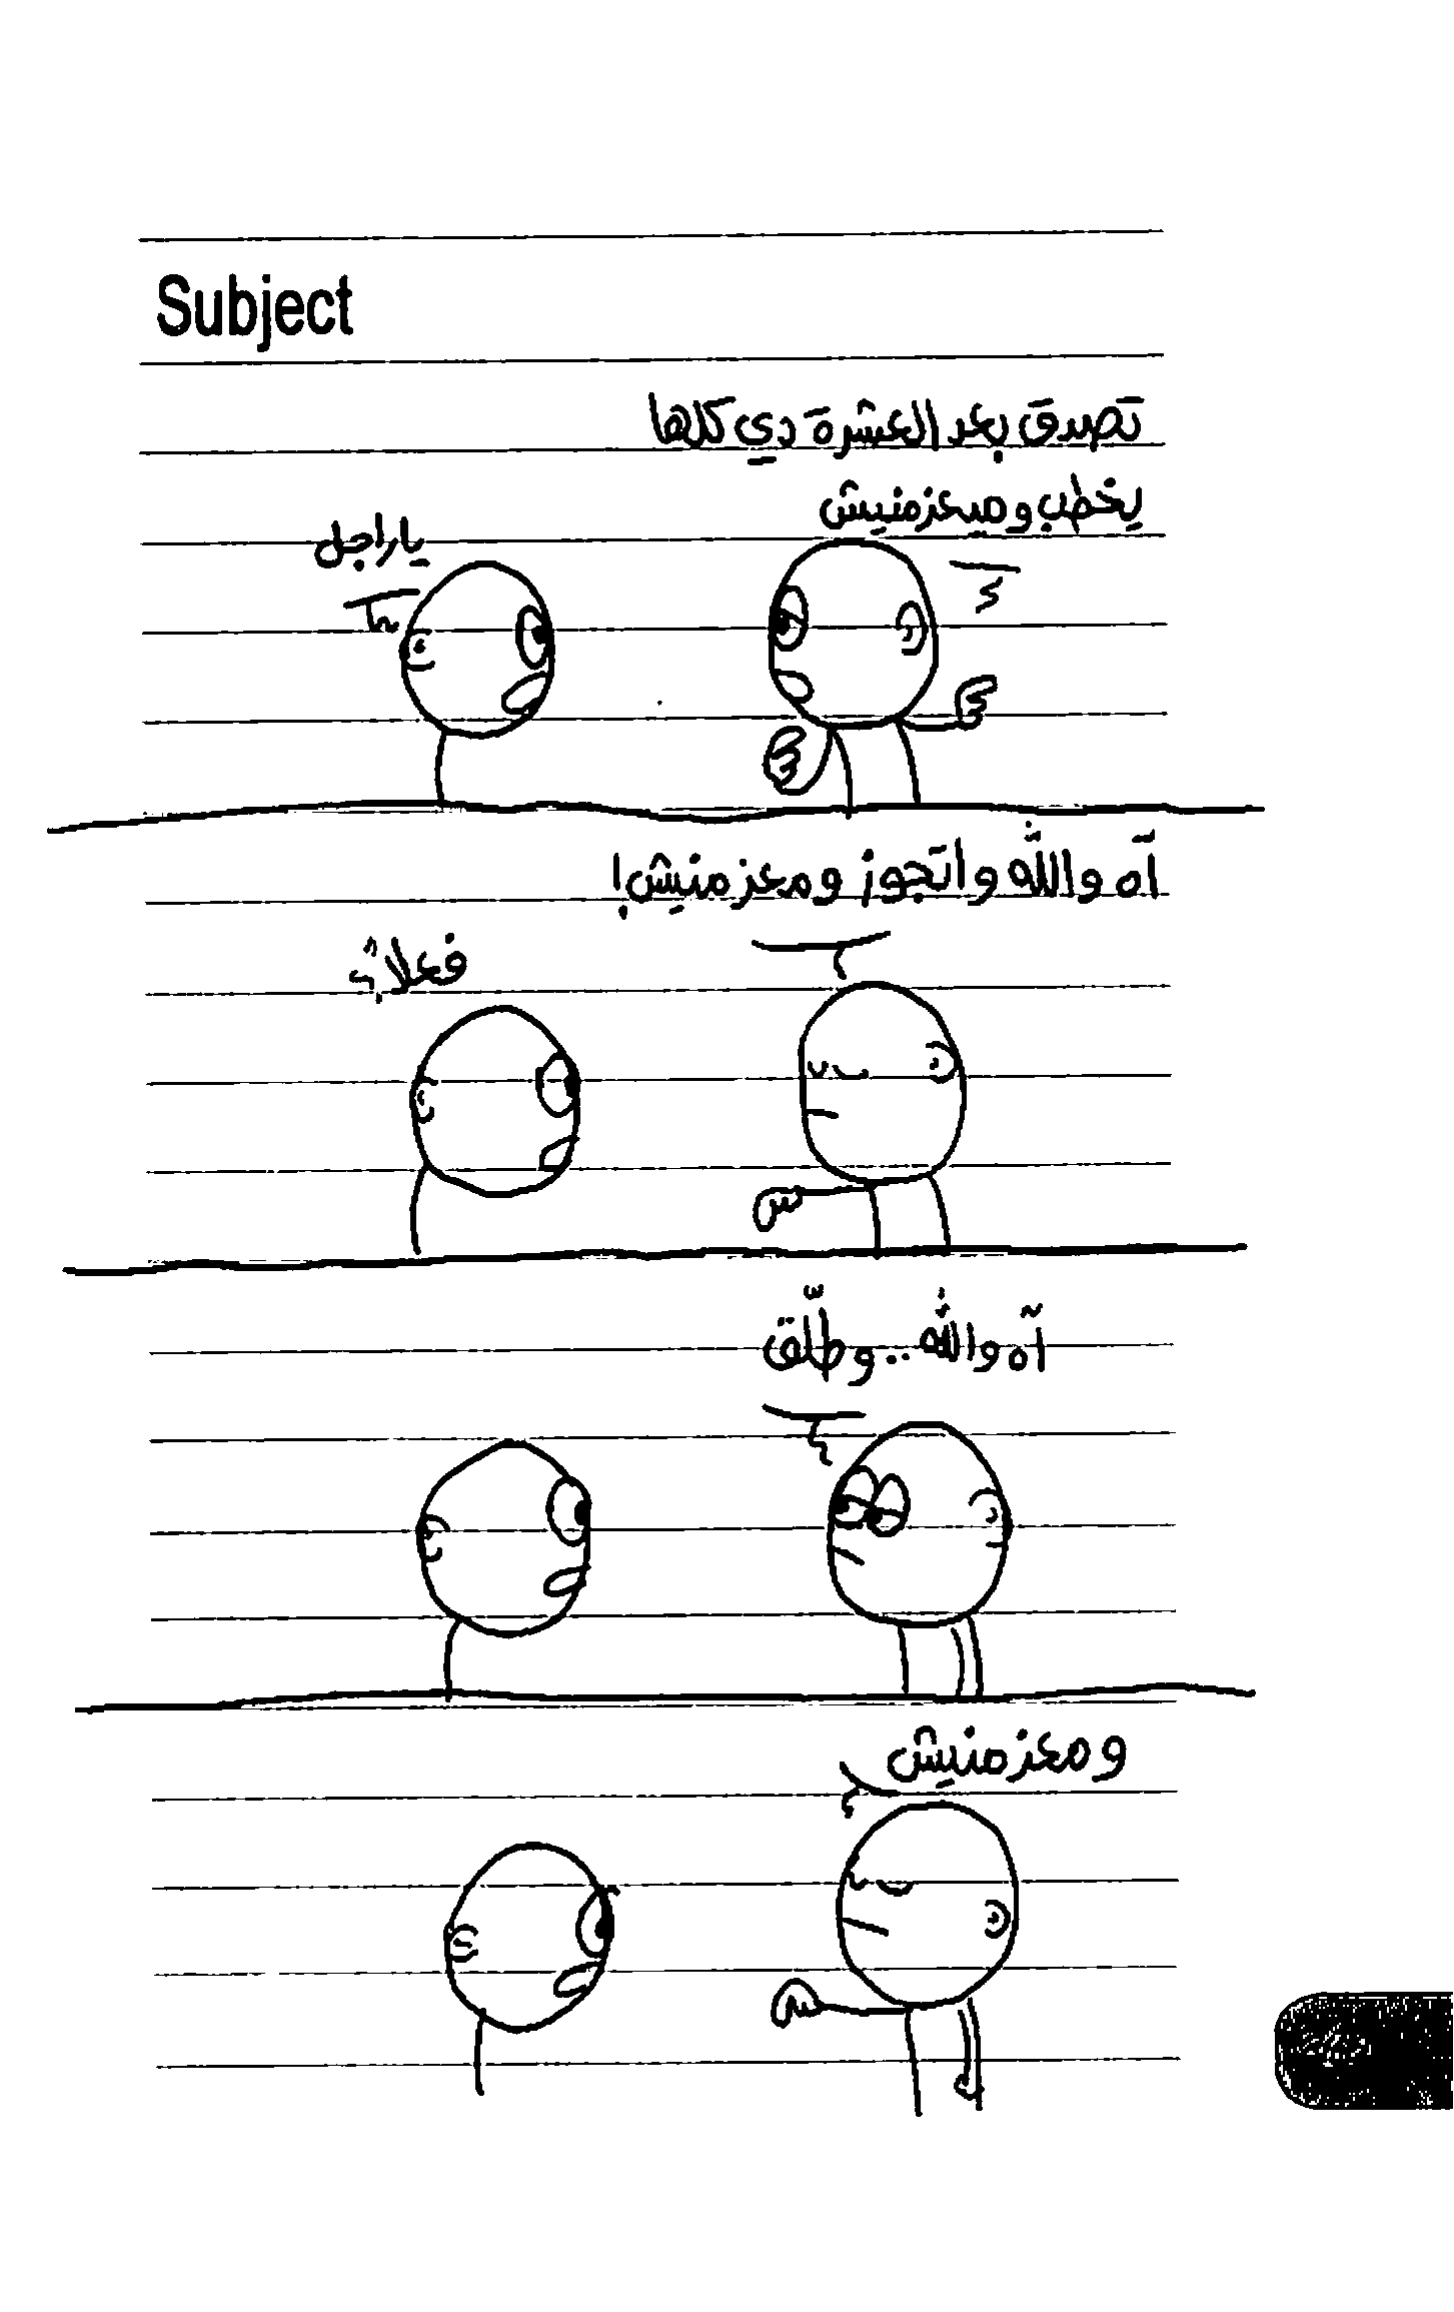 Subject
تصدق بعد العشرة دي كلها
يخطب وميعزمنيش
ياراجل
آه والله واتجوز ومعزمنيش!
فعلا؟
آه والله.. وطلّق
ومعزمنيش